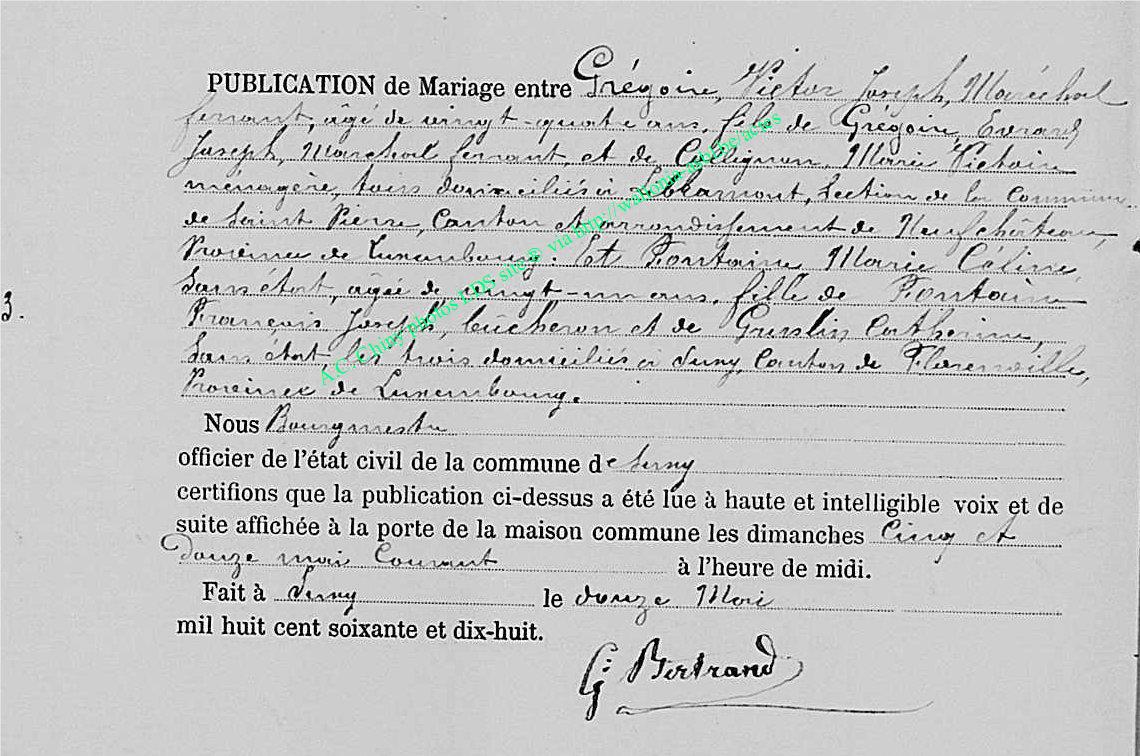 PUBLICATION de Mariage entre Grégoire, Victor Joseph, Maréchal
ferrant, âgé de vingt-quatre ans, fils de Grégoire, Evrard
Joseph, Marechal ferrant et de Collignon, Marie Victoire
ménagère, tous domiciliés à Libramont, Section de la Commune
de Saint Pierre, Canton et arrondissement de Neufchâteau,
Province de Luxembourg. Et Fontaine, Marie Céline,
Sans état, agée de vingt-un ans, fille de Fontaine
3.
François Joseph, bûcheron et de Catherine,
Sans état, les trois domiciliés à Suny, Canton de Florenville,
Province de Luxembourg.
Nous Bourgmestre
officier de l'état civil de la commune de Suny
certifions que la publication ci-dessus a été lue à haute et intelligible voix et de
suite affichée à la porte de la maison commune les dimanches Cinq et
Douze mai Courant à l'heure de midi.
Fait à Suny le douze Mai
mil huit cent soixante et dix-huit.
G. Bertrand
A.C. Chiny photos LDS site® via http://wallonia-asbl.be/actes